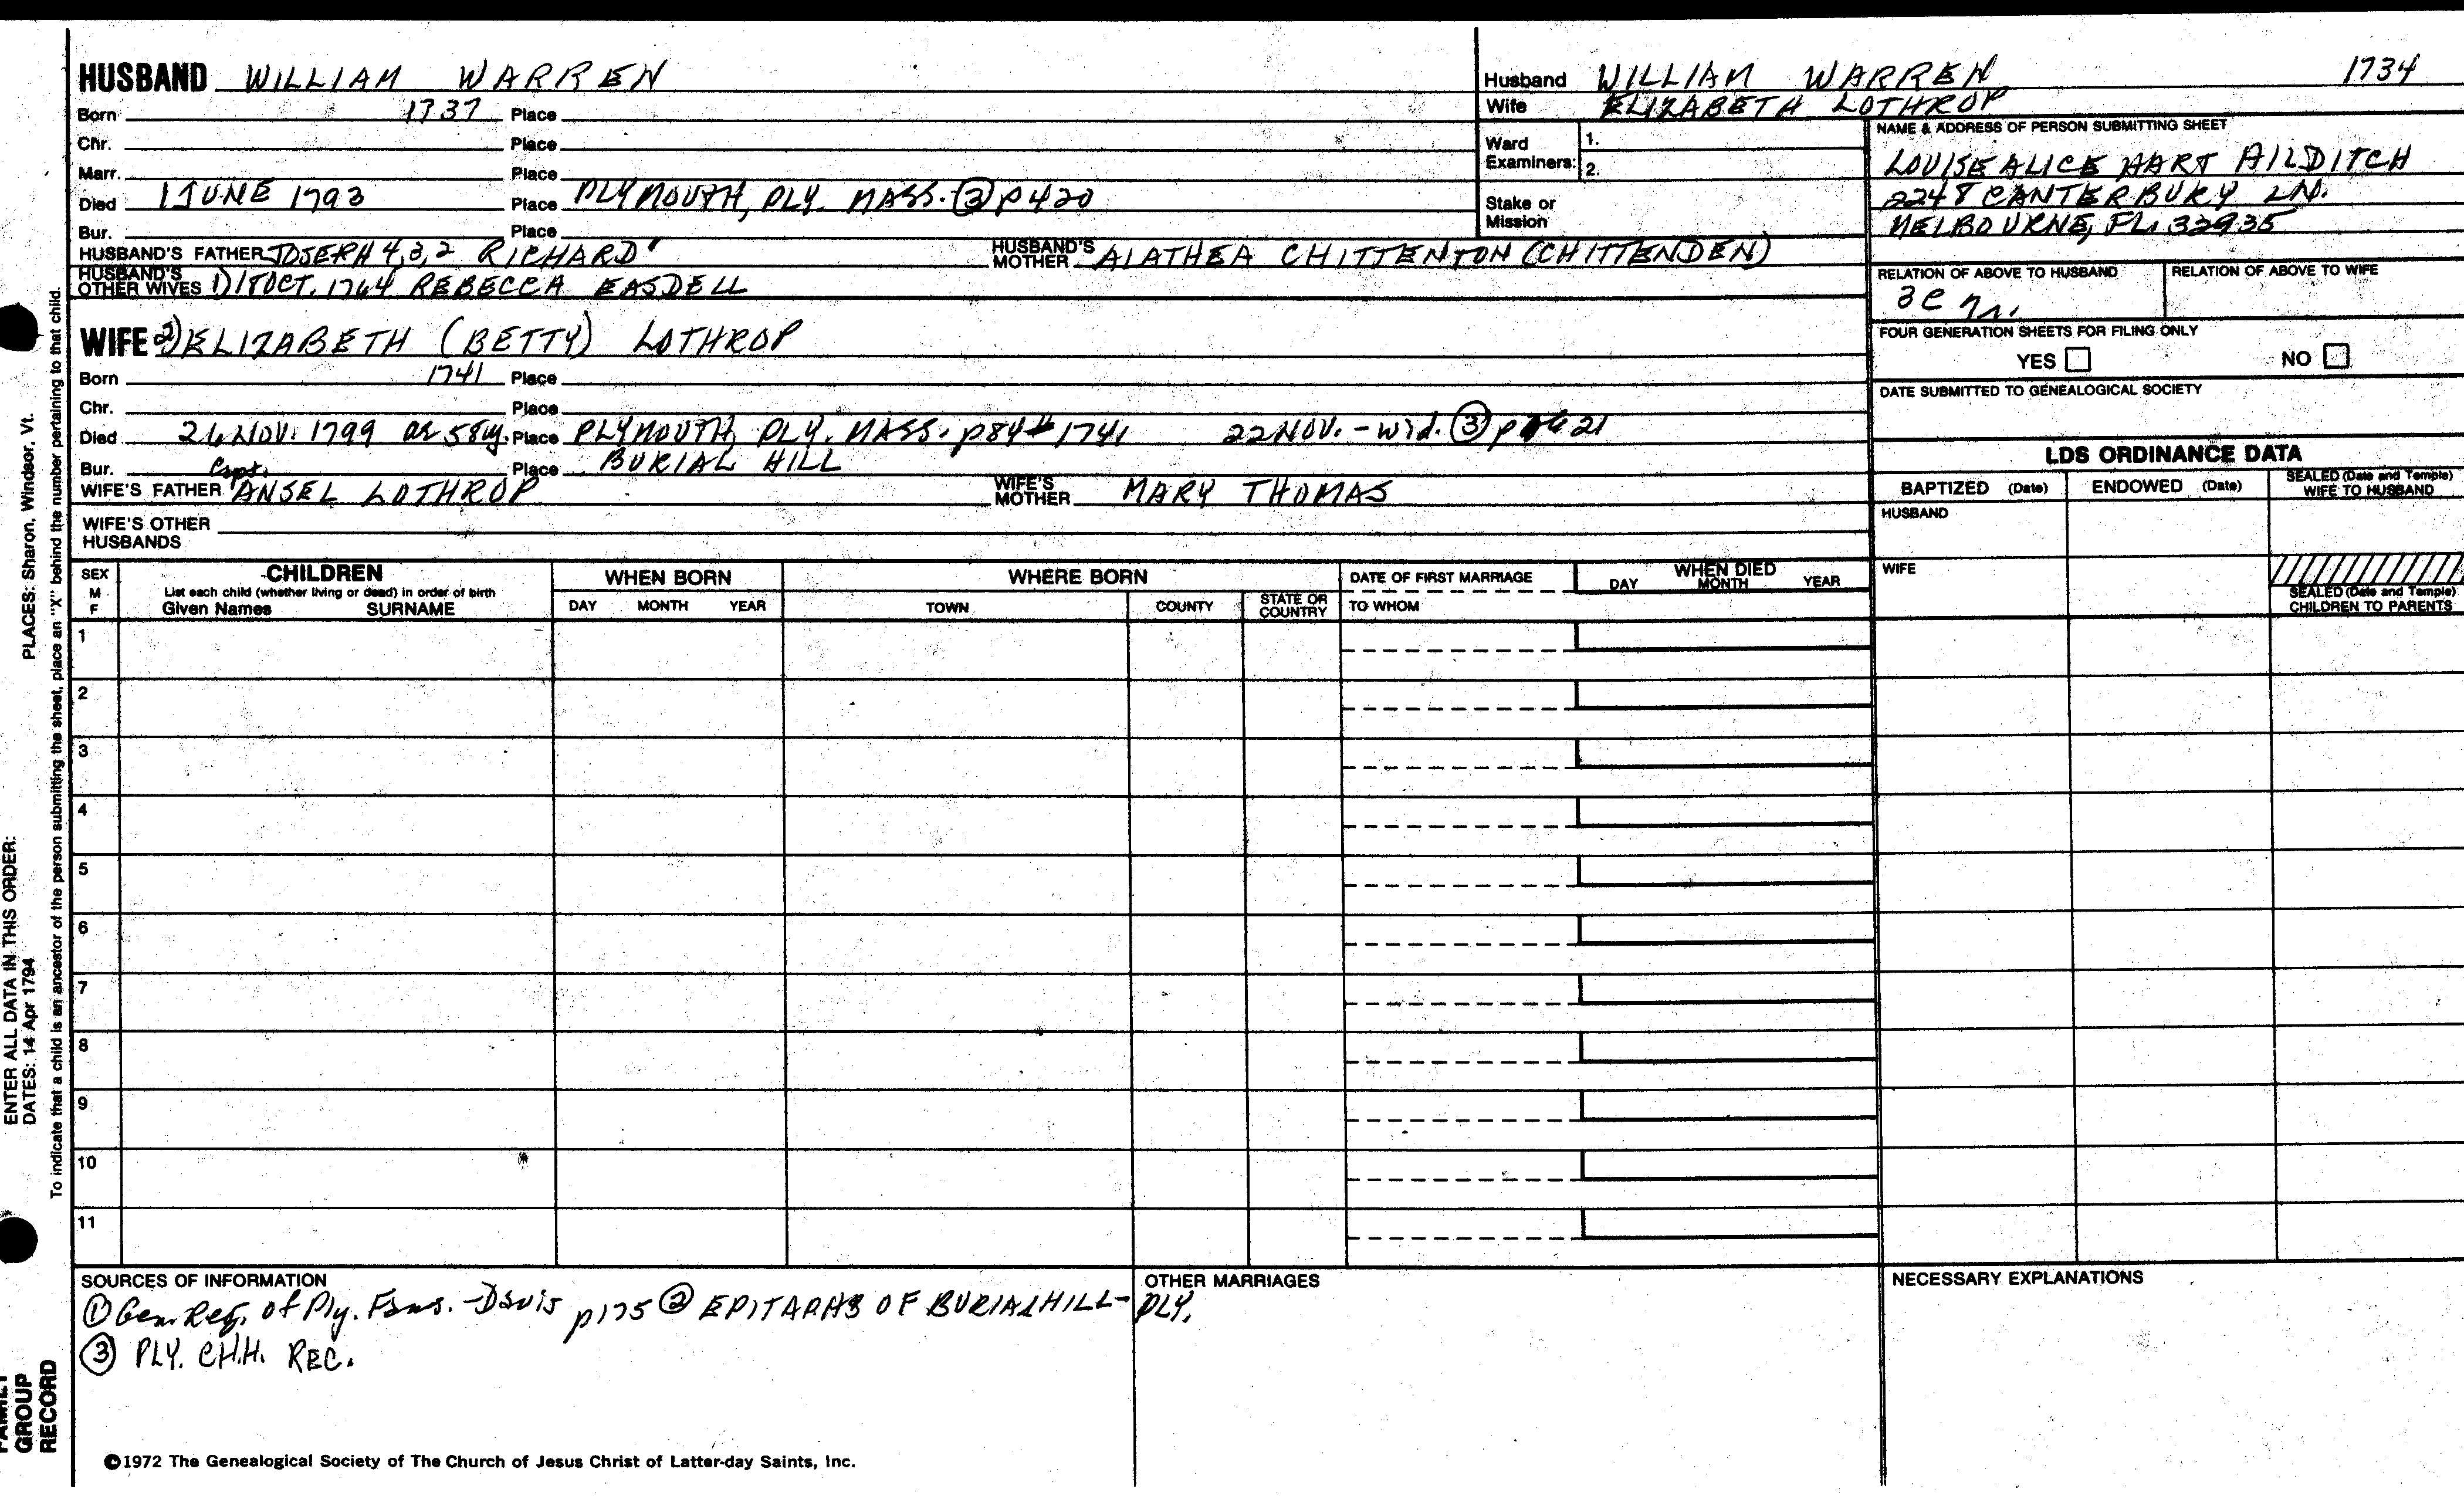 HUSBAND WILLIAM WARREN
Born 1737 Place
Chr. Place
Marr. Place
Died 1 JUNE 1793 Place PLYMOUTH, PLY. MASS. ③ P420
Bur. Place
HUSBAND'S FATHER JOSEPH 4,3,2 RICHARD'
HUSBAND'S MOTHER ALATHEA CHITTENTON (CHITTENDEN)
HUSBAND'S OTHER WIVES 1) OCT. 1764 REBECCA EASDELL
WIFE 2) ELIZABETH (BETTY) LOTHROP
Born 1741 Place
Chr. Place
Died NOV. 1799 ae 58y. Place PLYMOUTH, PLY. MASS. p84 # 1741 22 NOV. - wid. ③ p 21
Bur. Place BURIAL HILL
WIFE'S FATHER Capt. ANSEL LOTHROP
WIFE'S MOTHER MARY THOMAS
WIFE'S OTHER HUSBANDS
Husband WILLIAM WARREN 1734
Wife ELIZABETH LOTHROP
Ward Examiners: 1.
2.
Stake or Mission
NAME & ADDRESS OF PERSON SUBMITTING SHEET
LOUISE ALICE HART AILDITCH
2248 CANTERBURY LN.
MELBOURNE, FL. 32935
RELATION OF ABOVE TO HUSBAND
RELATION OF ABOVE TO WIFE
FOUR GENERATION SHEETS FOR FILING ONLY
YES NO
DATE SUBMITTED TO GENEALOGICAL SOCIETY
LDS ORDINANCE DATA
BAPTIZED (Date) ENDOWED (Date) SEALED (Date and Temple) WIFE TO HUSBAND
HUSBAND
WIFE
SEALED (Date and Temple) CHILDREN TO PARENTS
SEX M F
CHILDREN
List each child (whether living or dead) in order of birth
Given Names SURNAME
WHEN BORN
DAY MONTH YEAR
WHERE BORN
TOWN COUNTY STATE OR COUNTRY
DATE OF FIRST MARRIAGE
TO WHOM
WHEN DIED
DAY MONTH YEAR
1
2
3
4
5
6
7
8
9
10
11
SOURCES OF INFORMATION
① Gen. Reg. of Ply. Fams. - Davis p175 ② EPITAPHS OF BURIAL HILL - PLY.
③ PLY. CH.H. REC.
OTHER MARRIAGES
NECESSARY EXPLANATIONS
©1972 The Genealogical Society of The Church of Jesus Christ of Latter-day Saints, Inc.
PLACES: Sharon, Windsor, Vt.
To indicate that a child is an ancestor of the person submitting the sheet, place an "X" behind the number pertaining to that child.
ENTER ALL DATA IN THIS ORDER:
DATES: 14 Apr 1794
FAMILY GROUP RECORD